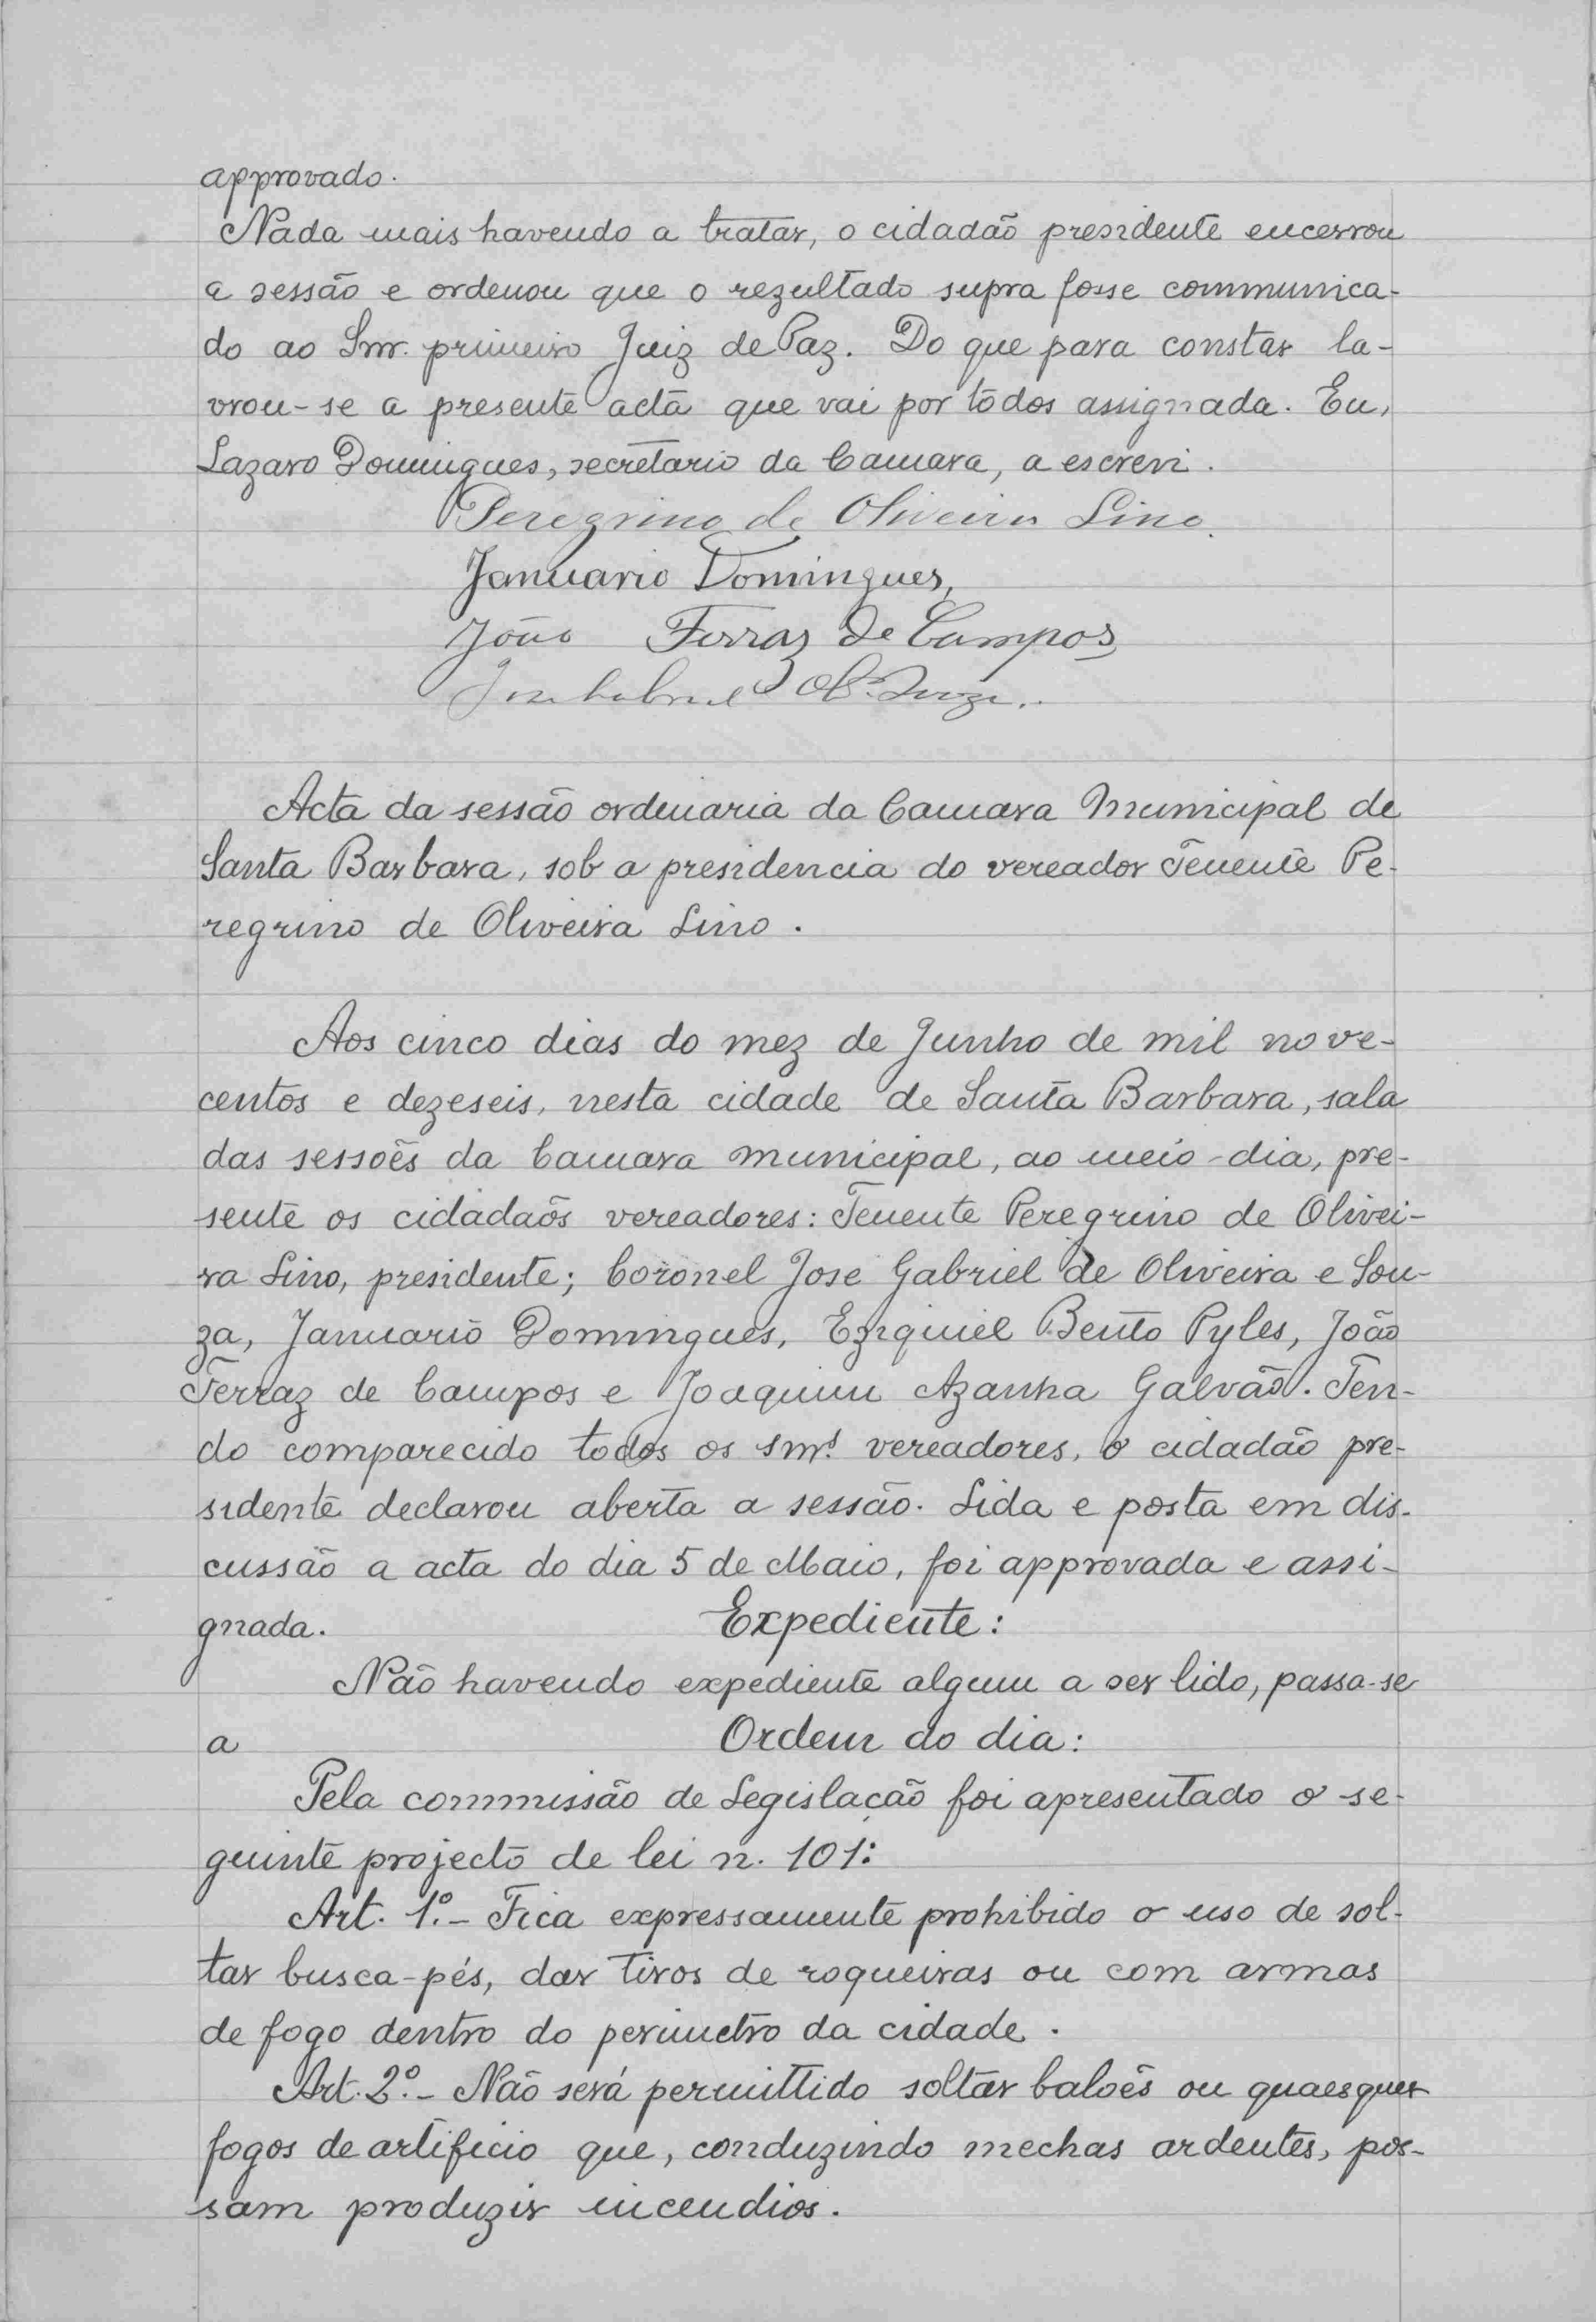 approvado.
Nada mais havendo a tratar, o cidadão presidente encerrou
a sessão e ordenou que o rezultado supra fosse communica-
do ao Snr. primeiro Juiz de Paz. Do que para constar la-
vrou-se a presente acta que vai por todos assignada. Eu,
Lazaro Domingues, secretario da Camara, a escrevi.
Peregrino de Oliveira Lino.
Januario Domingues,
João Ferraz de Campos
José Gabriel Ol. Souza.
Acta da sessão ordinaria da Camara Municipal de
Santa Barbara, sob a presidencia do vereador Tenente Pe-
regrino de Oliveira Lino.
Aos cinco dias do mez de Junho de mil nove-
centos e dezeseis, nesta cidade de Santa Barbara, sala
das sessões da Camara municipal, ao meio-dia, pre-
sente os cidadãos vereadores: Tenente Peregrino de Olivei-
ra Lino, presidente; Coronel José Gabriel de Oliveira e Sou-
za, Januario Domingues, Eziquiel Bento Pyles, João
Ferraz de Campos e Joaquim Azanha Galvão. Ten-
do comparecido todos os snrs. vereadores, o cidadão pre-
sidente declarou aberta a sessão. Lida e posta em dis-
cussão a acta do dia 5 de Maio, foi approvada e assi-
gnada. Expediente:
Não havendo expediente algum a ser lido, passa-se
a Ordem do dia:
Pela commissão de Legislação foi apresentado o se-
guinte projecto de lei n. 101:
Art. 1º.- Fica expressamente prohibido o uso de sol-
tar busca-pés, dar tiros de roqueiras ou com armas
de fogo dentro do perimetro da cidade.
Art. 2º.- Não será permittido soltar balões ou quaesquer
fogos de artificio que, conduzindo mechas ardentes, pos-
sam produzir incendios.